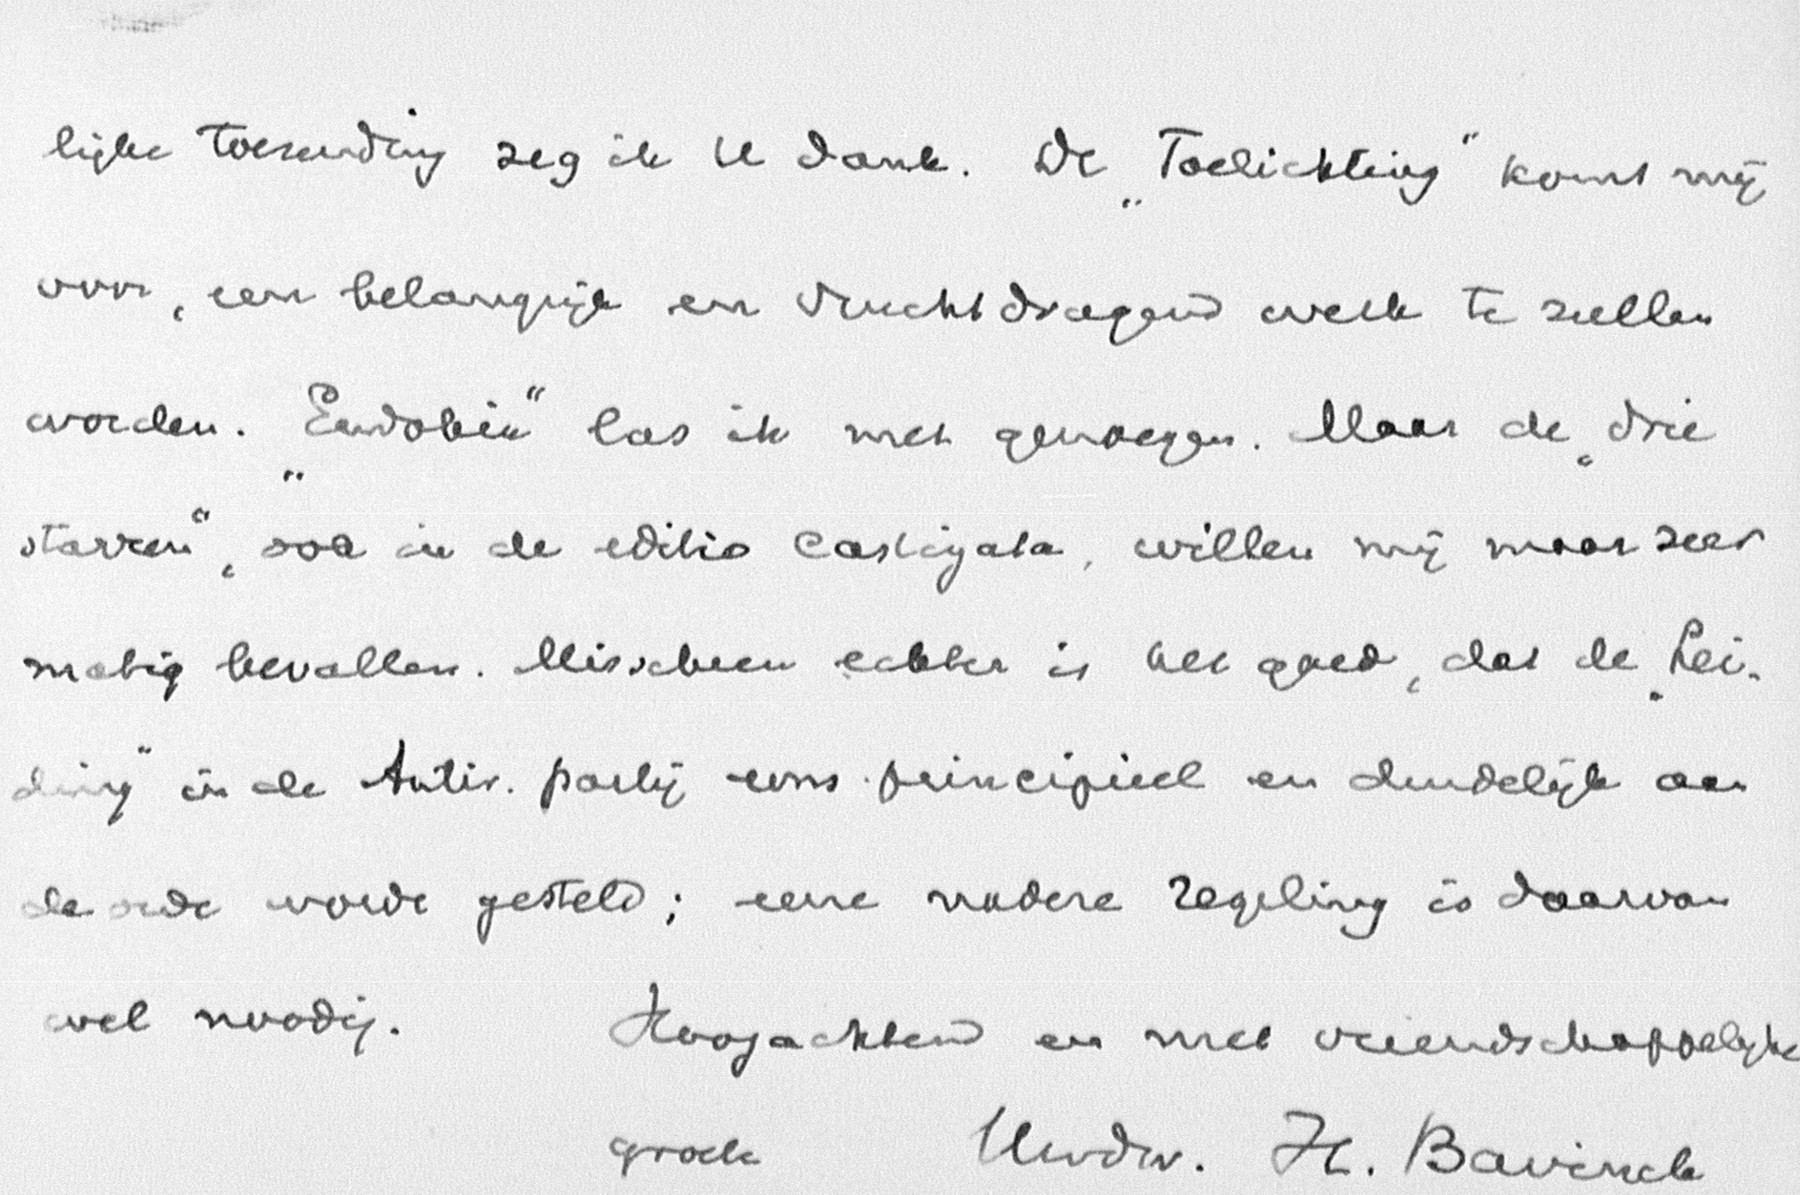 lijke toezending zeg ik U dank. De „Toelichting“ komt mij
voor, een belangrijk en vruchtdragend werk te zullen
worden. „Eudokia“ las ik met genoegen. Maar de „drie
starren“, ook in de editio castigata, willen mij maar zeer
matig bevallen. Misschien echter is het goed, dat de „Lei-
ding“ in de Antir. partij eens principieel en duidelijk aan
de orde worde gesteld; eene nadere regeling is daarvan
wel noodig.
Hoogachtend en met vriendschappelijke
groete Uwdw. H. Bavinck